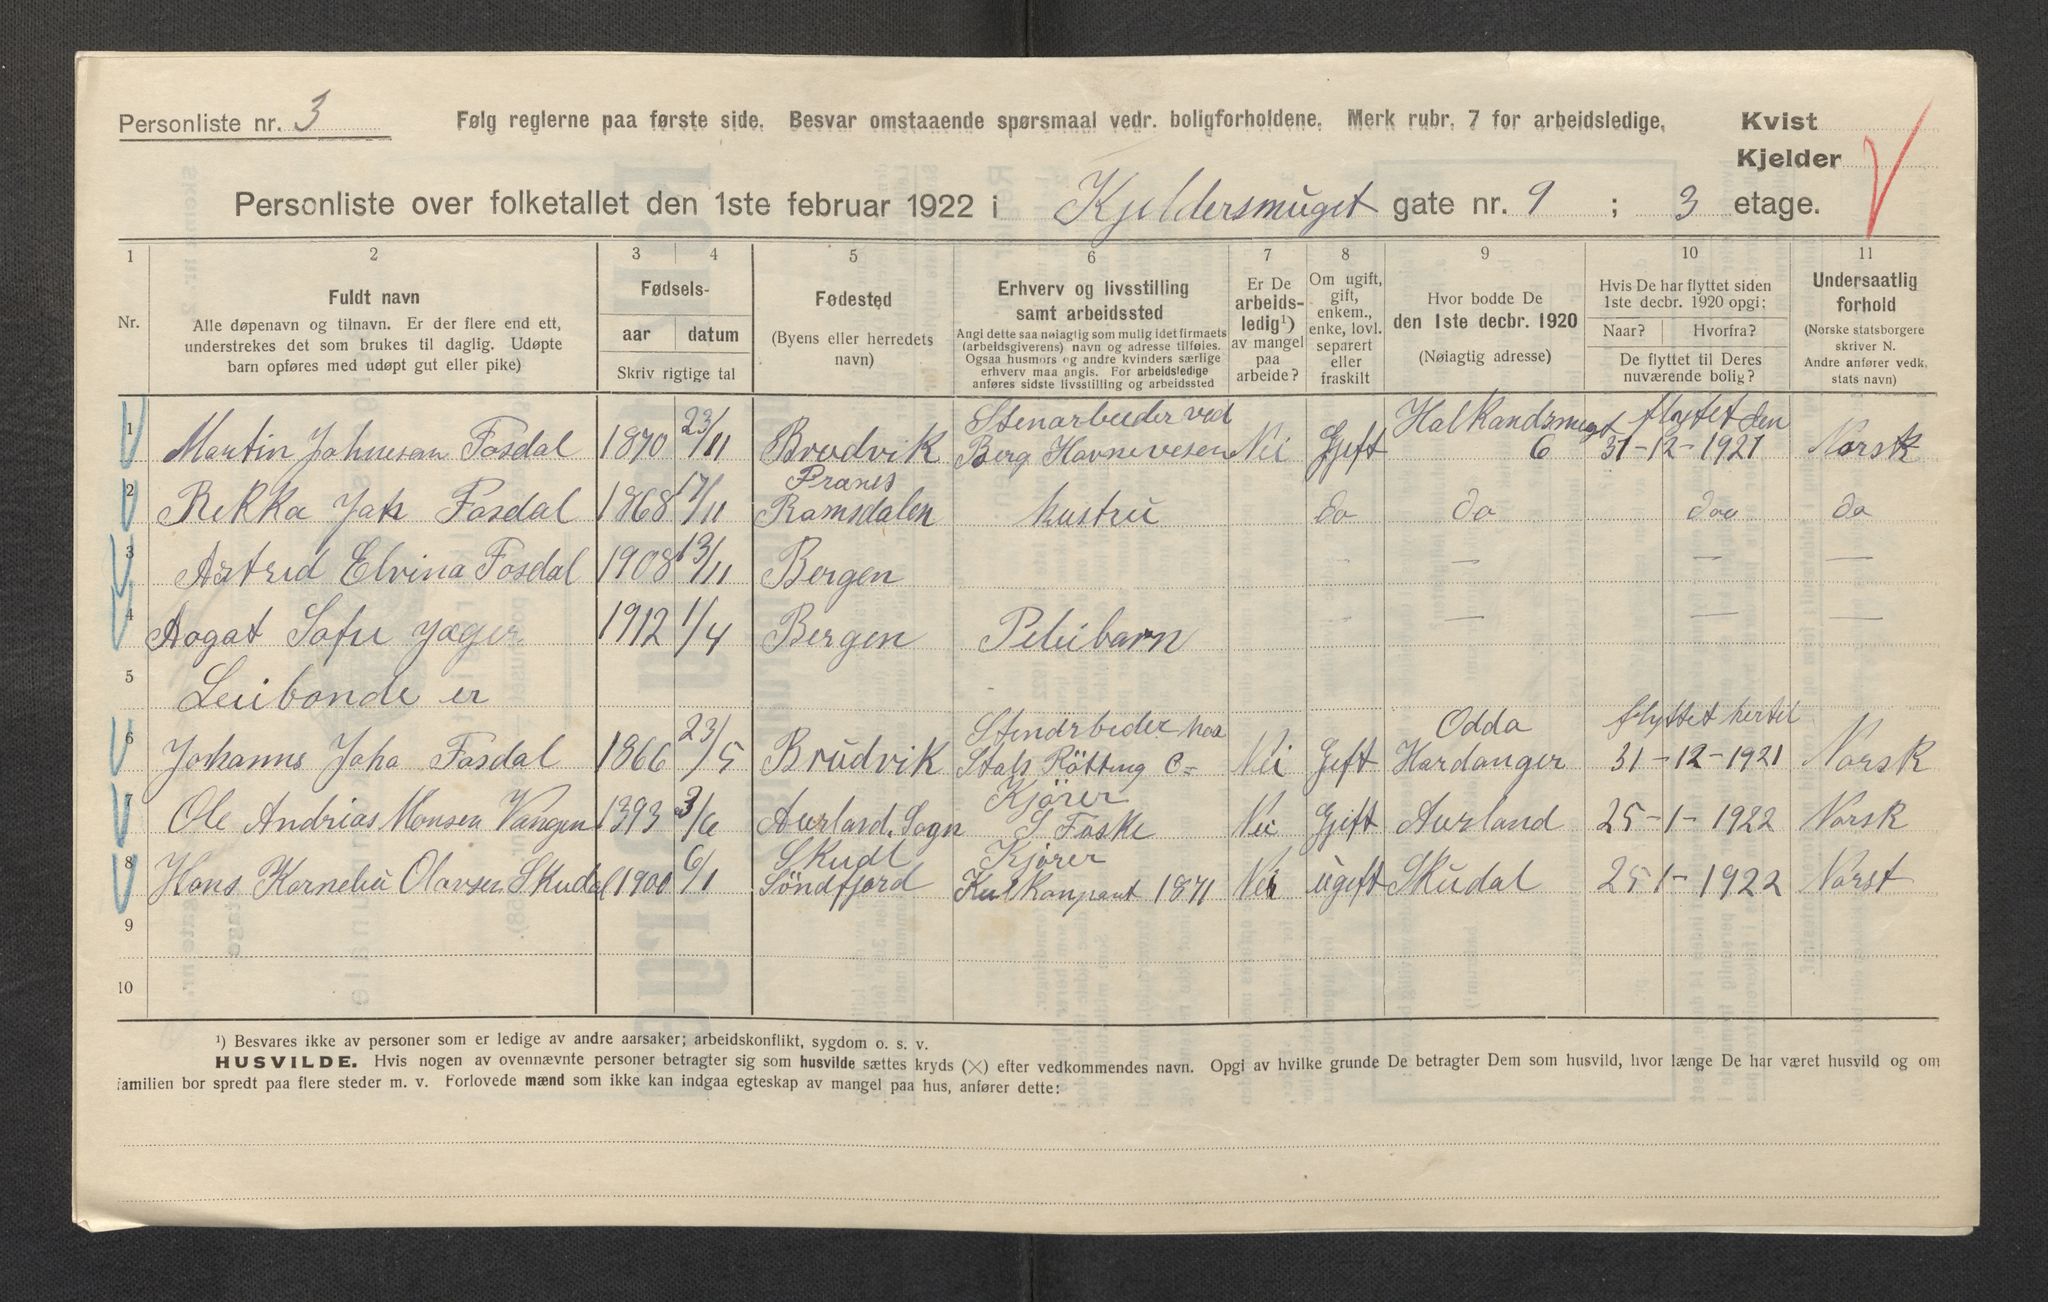 Personliste nr. 3
Følg reglerne paa første side. Besvar omstaaende spørsmaal vedr. boligforholdene. Merk rubr. 7 for arbeidsledige.
Kvist
Kjelder
Personliste over folketallet den 1ste februar 1922 i Kjeldersmuget gate nr. 9 ; 3 etage.
1 2 3 4 5 6 7 8 9 10 11
Nr.
Fuldt navn
Alle døpenavn og tilnavn. Er der flere end ett,
understrekes det som brukes til daglig. Udøpte
barn opføres med udøpt gut eller pike)
Fødsels-
aar datum
Skriv rigtige tal
Fødested
(Byens eller herredets
navn)
Erhverv og livsstilling
samt arbeidssted
Angi dette saa nøiagtig som mulig idet firmaets
(arbeidsgiverens) navn og adresse tilføies.
Ogsaa husmors og andre kvinders særlige
erhverv maa angis. For arbeidsledige
anføres sidste livsstilling og arbeidssted
Er De
arbeids-
ledig¹)
av mangel
paa
arbeide?
Om ugift,
gift,
enkem.,
enke, lovl.
separert
eller
fraskilt
Hvor bodde De
den 1ste decbr. 1920
(Nøiagtig adresse)
Hvis De har flyttet siden
1ste decbr. 1920 opgi:
Naar? Hvorfra?
De flyttet til Deres
nuværende bolig?
Undersaatlig
forhold
(Norske statsborgere
skriver N.
Andre anfører vedk.
stats navn)
1 Martin Johnesan Fosdal 1870 23/11 Brudvik Stenarbeider ved Berg Havnevesen Nei Gift Halkandsmuget 6 flytet den 31-12-1921 Norsk
2 Rekka Joh Fosdal 1868 17/11 Ramsdalen hustru do do do
3 Astrid Elvina Fosdal 1908 13/11 Bergen — — — —
4 Aagat Sofie Jæger 1912 1/4 Bergen Pleibarn — — — —
5 Leibonde er
6 Johanns Joha Fosdal 1866 23/5 Brudvik Stenarbeder hos Gift Odda Hardanger flyttet hertil 31-12-1921 Norsk
7 Ole Andrias Monsen Vangen 1393 3/6 Aurland. Sogn Kjører S Faske Nei Gift Aurland 25-1-1922 Norsk
8 Hans Kornelius Olavsen Skudal 1900 6/1 Skudl Söndfjord Kjører Kul Kompani 1871 Nei ugift Skudal 25-1-1922 Norsk
9
10
¹) Besvares ikke av personer som er ledige av andre aarsaker; arbeidskonflikt, sygdom o. s. v.
HUSVILDE. Hvis nogen av ovennævnte personer betragter sig som husvilde sættes kryds (×) efter vedkommendes navn. Opgi av hvilke grunde De betragter Dem som husvild, hvor længe De har været husvild og om
familien bor spredt paa flere steder m. v. Forlovede mænd som ikke kan indgaa egteskap av mangel paa hus, anfører dette: